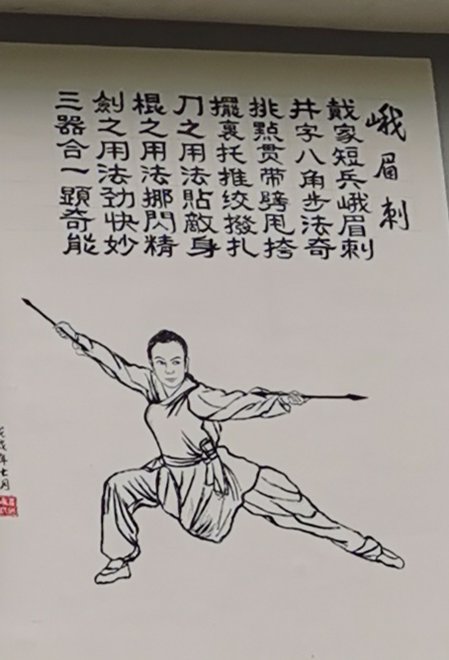 峨眉刺
戴家短兵峨眉刺
井字八角步法奇
挑點贯带劈甩挎
擺裏托推绞撥扎
刀之用法貼敵身
棍之用法挪閃精
劍之用法劲快妙
三器合一顕奇能
年七月